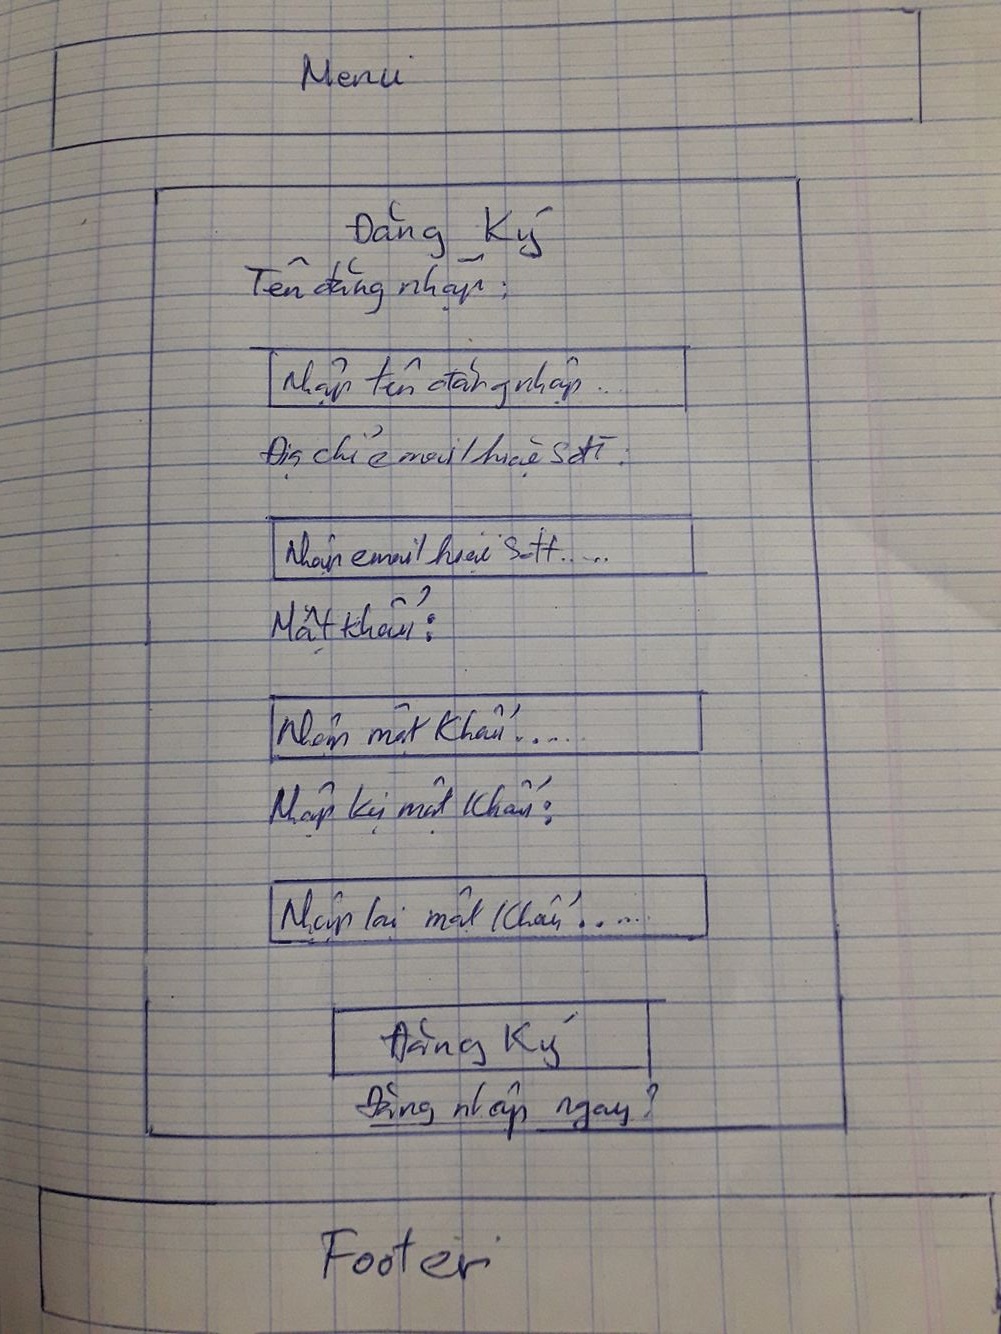 Menu
Đăng Ký
Tên đăng nhập:
Nhập tên đăng nhập...
Địa chỉ email hoặc SĐT:
Nhập email hoặc SĐT.....
Mật khẩu:
Nhập mật khẩu.....
Nhập lại mật khẩu:
Nhập lại mật khẩu.....
Đăng Ký
Đăng nhập ngay?
Footer